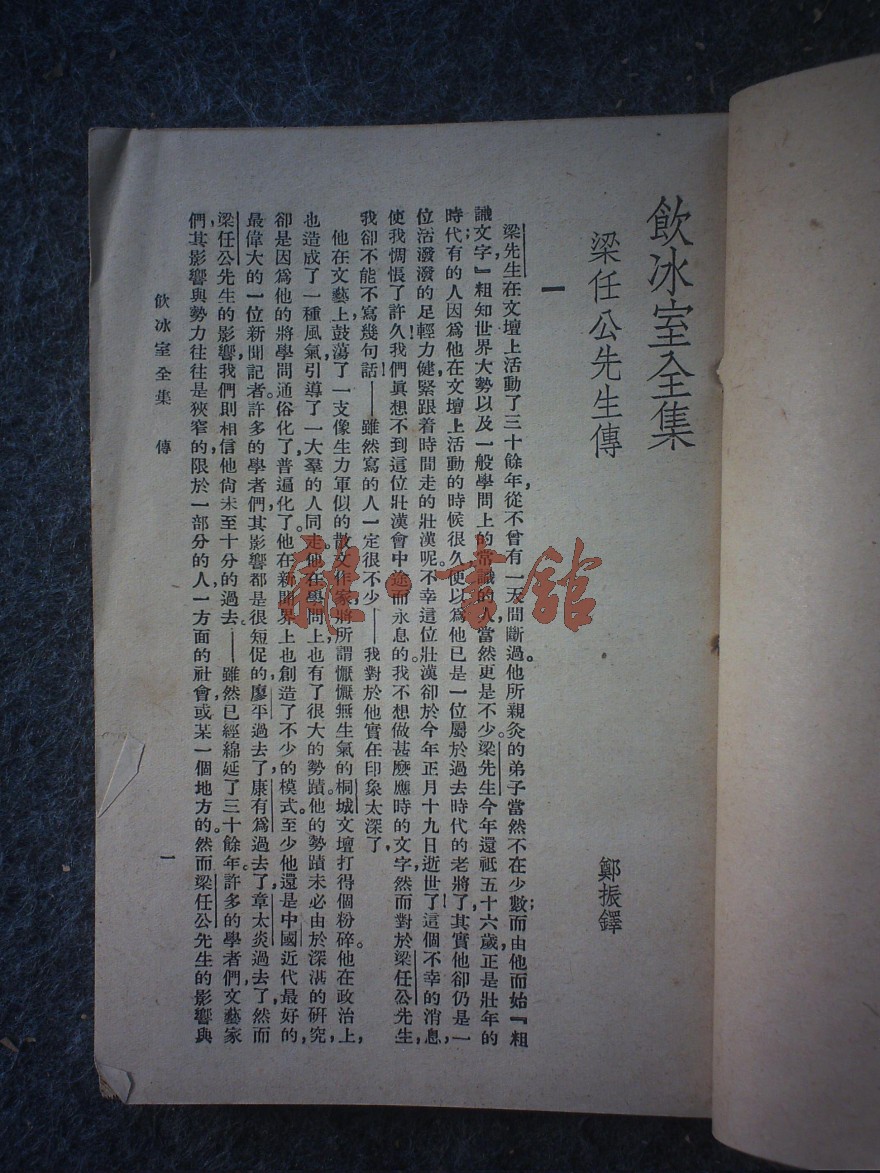 飲冰室全集
梁任公先生傳
鄭振鐸
一
梁先生在文壇上活動了三十餘年,從不曾有一天間斷過。他所親灸的弟子當然不在少數;而由他而始『粗
識文字』粗知世界大勢以及一般學問上的常識的人當然更是不少。梁先生今年還祗五十六歲,正是壯年的
時代有的人因爲他在文壇上活動的時候很久,便以爲他已是一位屬於過去時代的老將了,其實他卻仍是一
位活潑潑的足輕力健,緊跟着時間走的壯漢呢。不幸這位壯漢卻於今年正月十九日逝世了!這個不幸的消息,
使我惆悵了許久!我們眞想不到這位壯漢會中途而永息的。我不想做甚麼應時的文字,然而對於梁任公先生,
我卻不能不寫幾句話——雖然寫的人一定很不少——我對於他實在印象太深了,
他在文藝上鼓蕩了一支像生力軍似的散文作家,將所謂懨懨無生氣的桐城文壇打得個粉碎。他在政治上,
也造成了一種風氣,引導了一大羣的人同走。他在學問上也有了很大的勢蹟。他的勢蹟未必由於深湛的研究,
卻是因爲他的將學問通俗化了,普遍化了。他在新聞界上也創造了不少的模式。至少他還是中國近代最好的,
最偉大的一位新聞記者。許多的學者們,其影響都是很短促的,廖平過去了,康有爲過去了,章太炎過去了,然而
梁任公先生的影響我們則相信他尙未至十分的過去。——雖然已經綿延了三十餘年。許多的學者們,文藝家
們,其影響與勢力往往是狹窄的,限於一部分的人,一方面的社會,或某一個地方的。然而梁任公先生的影響與
飲冰室全集 傳
一
雜·書舘